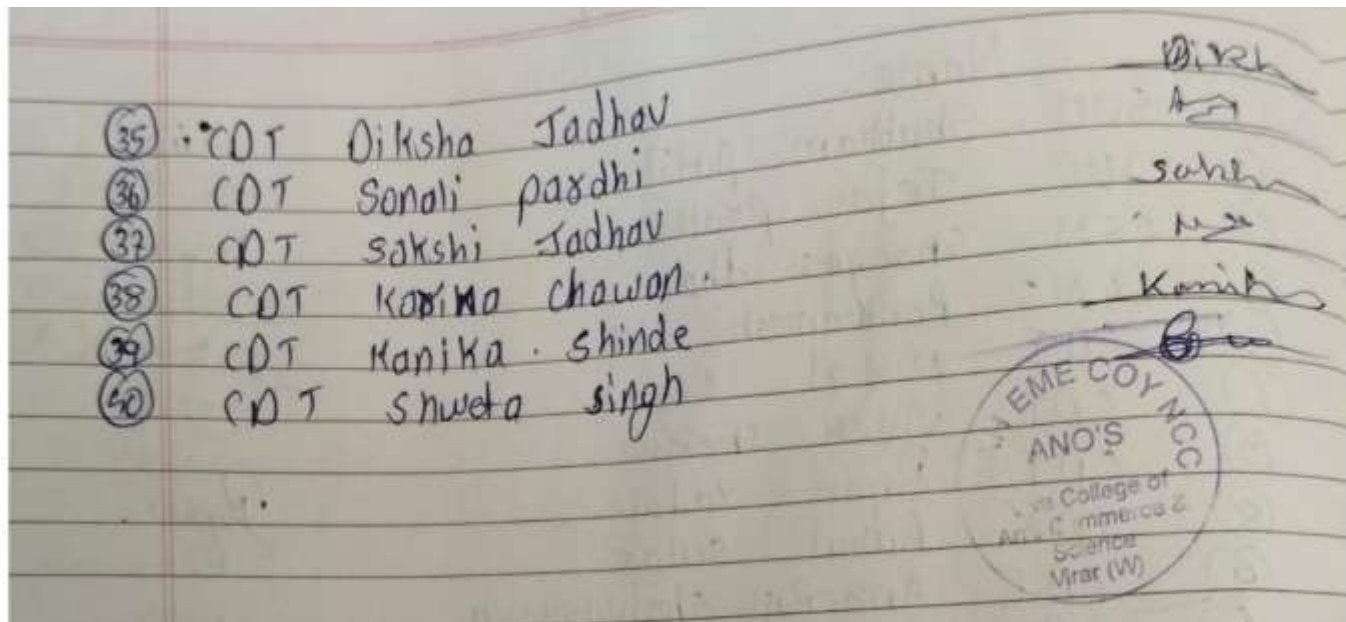 35 CDT Diksha Jadhav
36 CDT Sonali pardhi
37 CDT Sakshi Jadhav Sakh
38 CDT Karina chawan.
39 CDT Kanika . Shinde Kanik
40 CDT Shweta singh
EME COY NCC
ANO'S
College of
Commerce &
Science
Virar (W)